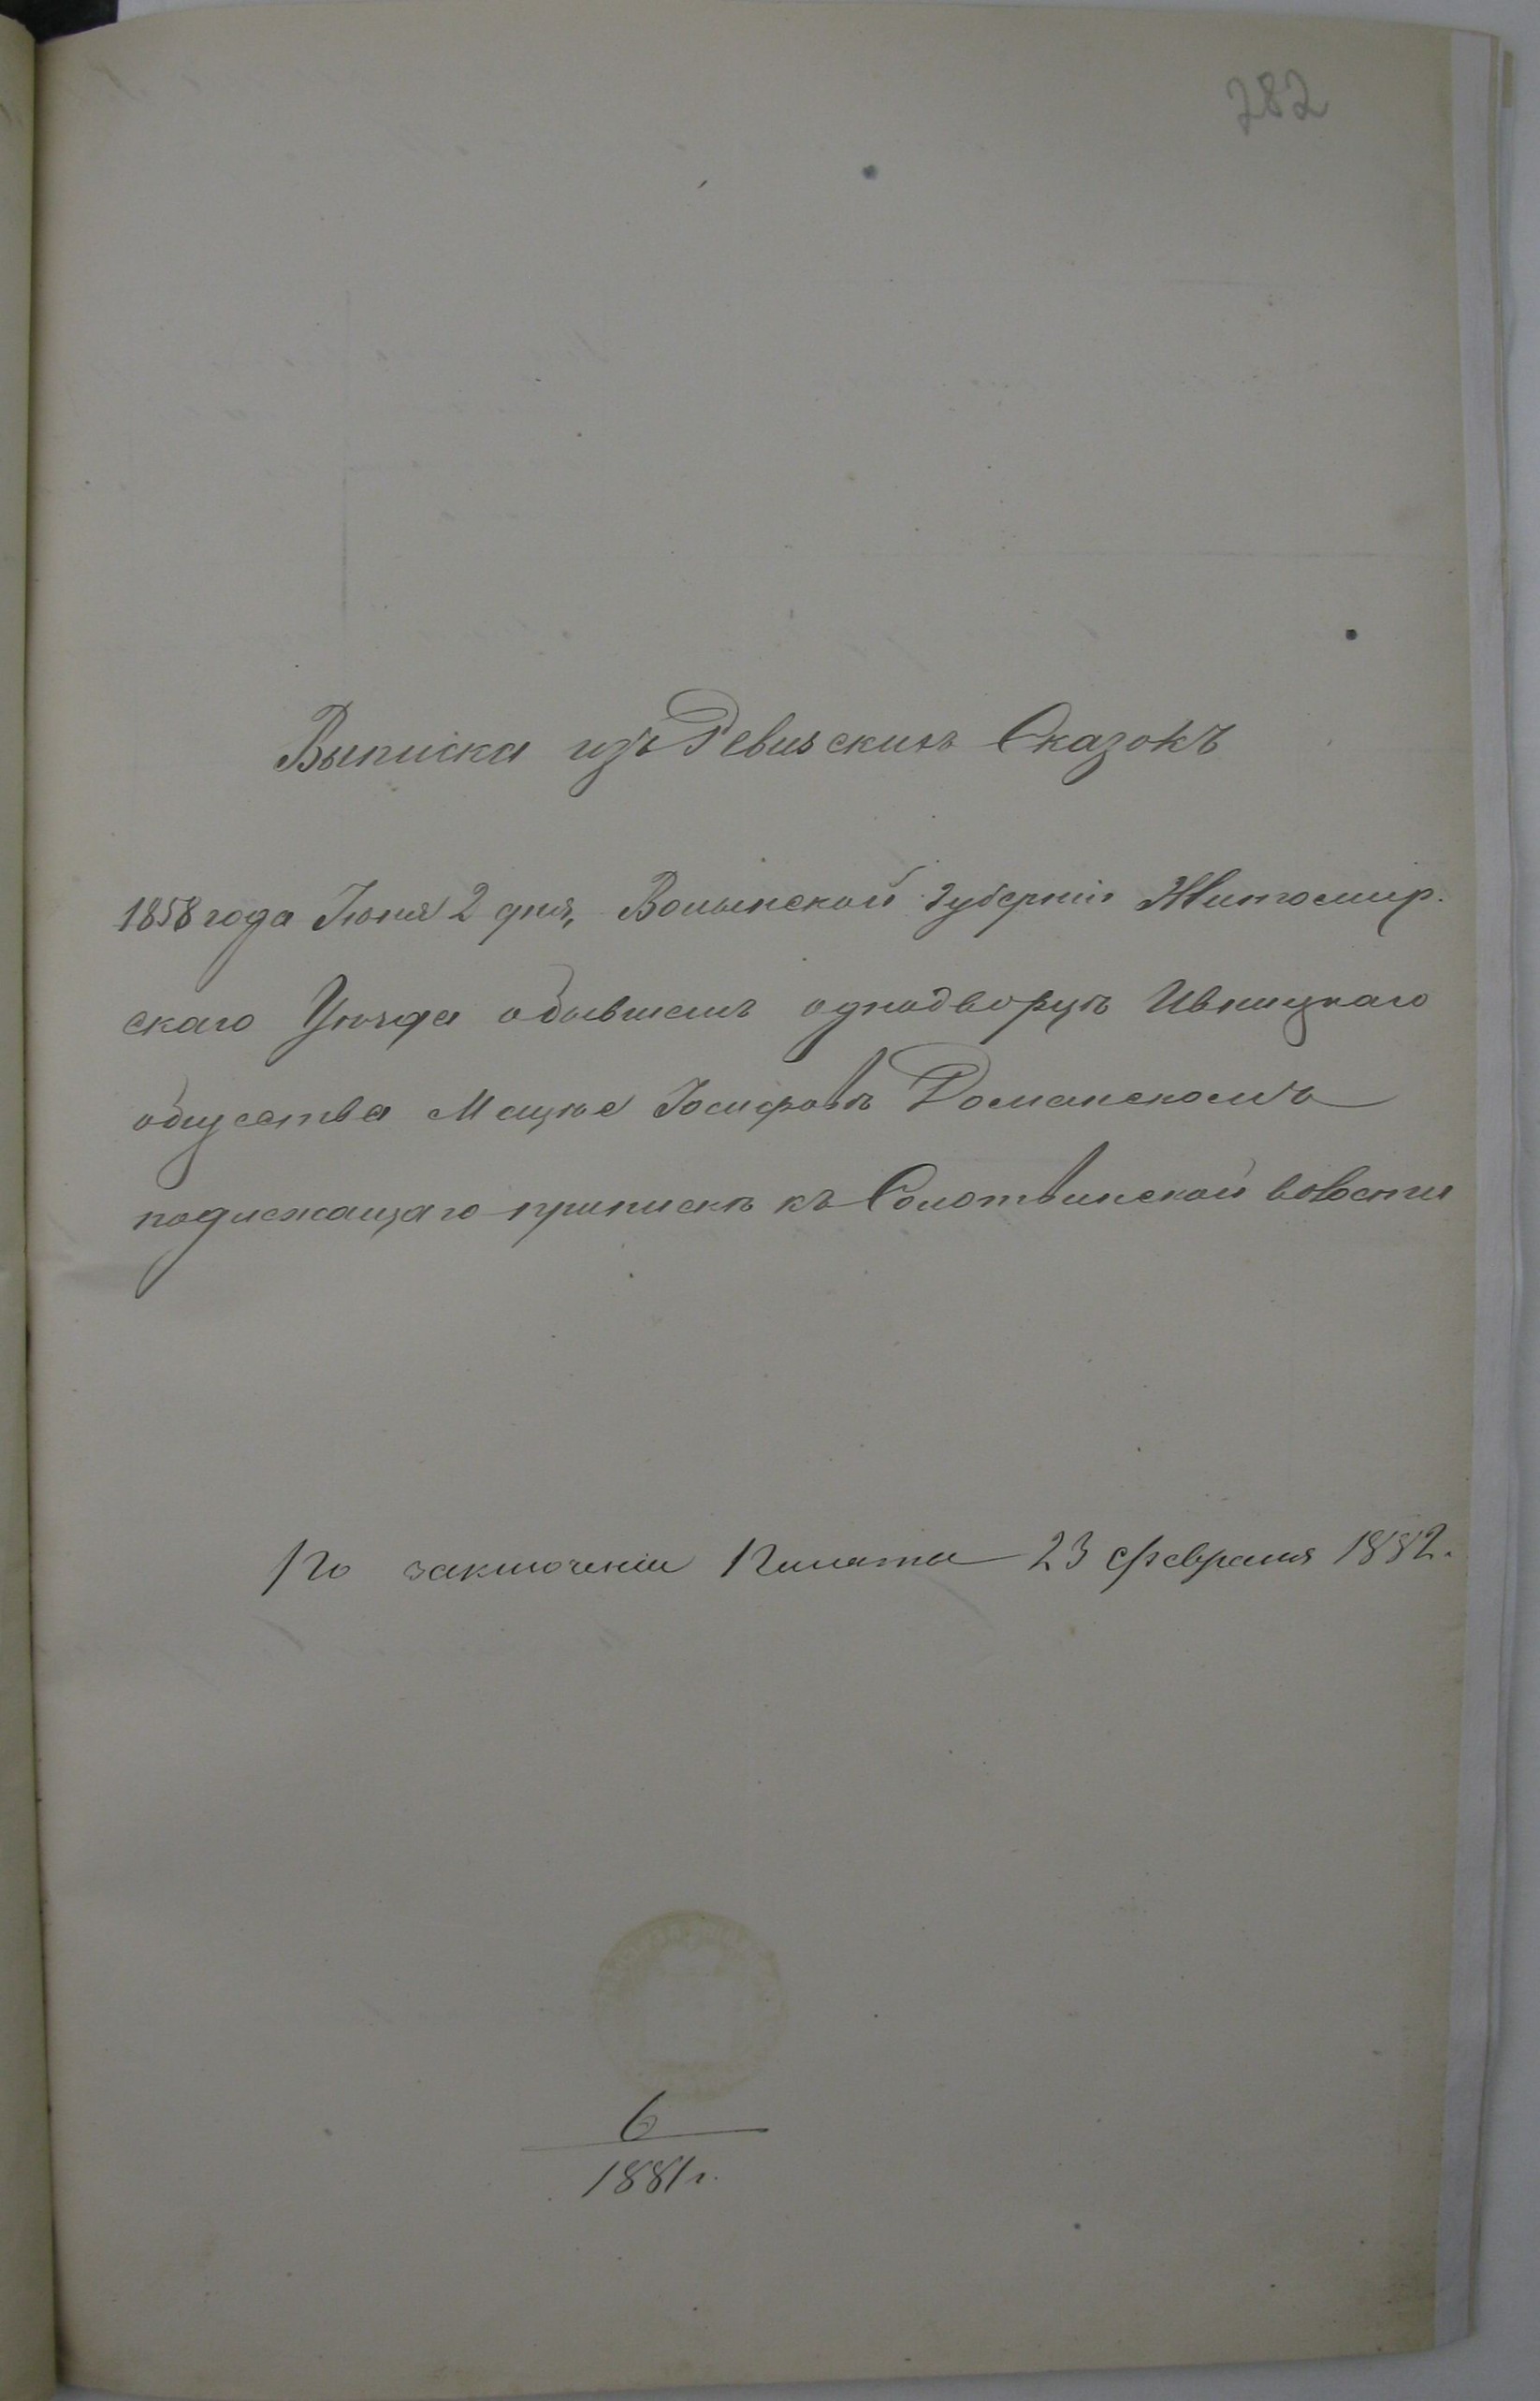 282
Выписка изъ Ревизскихъ Сказокъ
1858 года Іюня 2 дня, Волынской губерніи Житомир-
скаго Уѣзда обывшемъ однодворцѣ Ивницкаго
общества Мацѣе Іосифовѣ Романскомъ
подлежащаго припискѣ къ Солотвинской волости
По заключенію Палаты 23 февраля 1882.
6
1881 г.